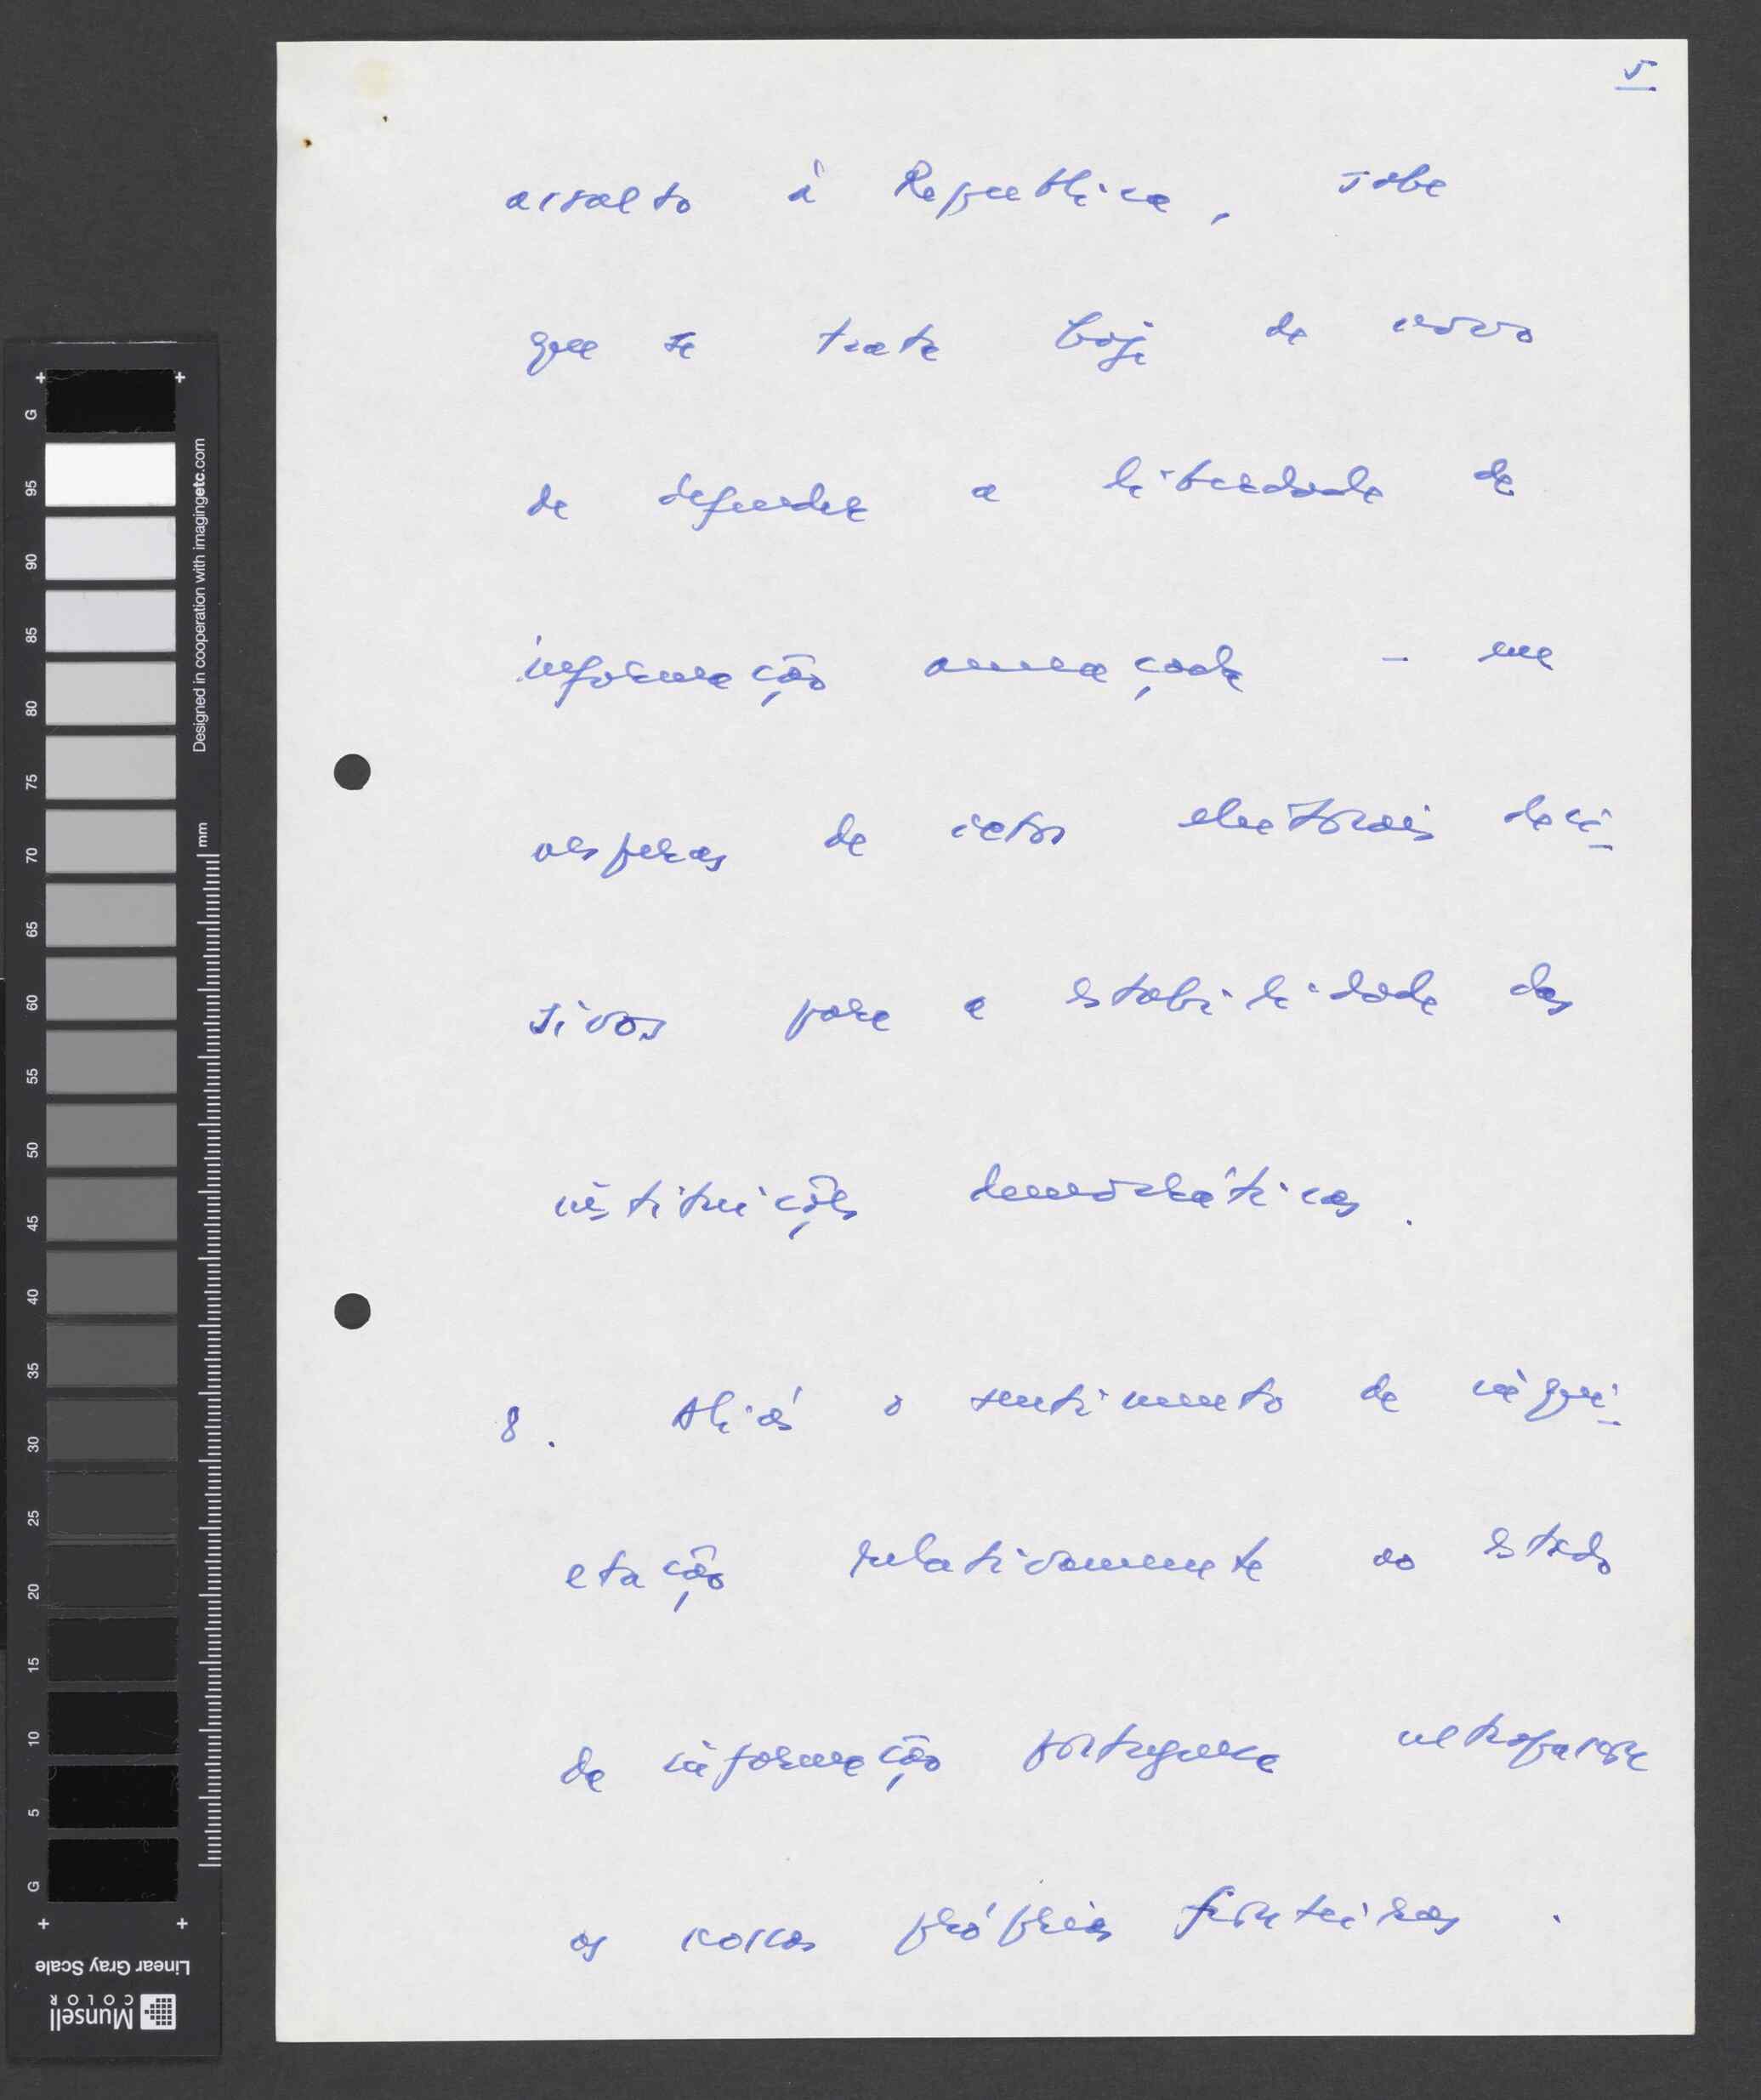 5
assalto à Republica, sabe
que se trata hoje de novo
de defender a liberdade de
informação ameaçada - em
vesperas de actos eleitorais deci-
sivos para a estabilidade das
instituições democráticas.
8. Aliás o sentimento de inqui-
etação relativamente ao estado
da informação portuguesa ultrapassa
as nossas próprias fronteiras.
G 95 90 85 80 75 70 65 60 55 50 45 40 35 30 25 20 15 10 5 G
mm
Designed in cooperation with imagingetc.com
Linear Gray Scale
Munsell
COLOR